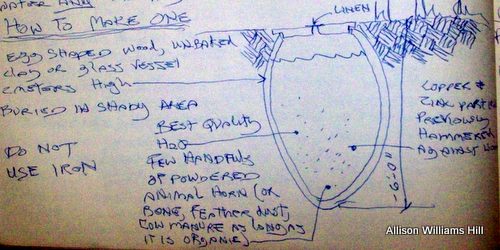 WATER AND
HOW TO MAKE ONE
LINEN
EGG SHAPED WOOD, UNBAKED
CLAY OR GLASS VESSEL
2 METERS HIGH
BURIED IN SHADY AREA
DO NOT
USE IRON
BEST QUALITY
H2O
FEW HANDFULS
OF POWDERED
ANIMAL HORN (OR
BONE, FEATHER DUST,
COW MANURE AS LONG AS
IT IS ORGANIC)
COPPER &
ZINC PARTS
PREVIOUSLY
HAMMERED
AGAINST
~6'.0"
Allison Williams Hill